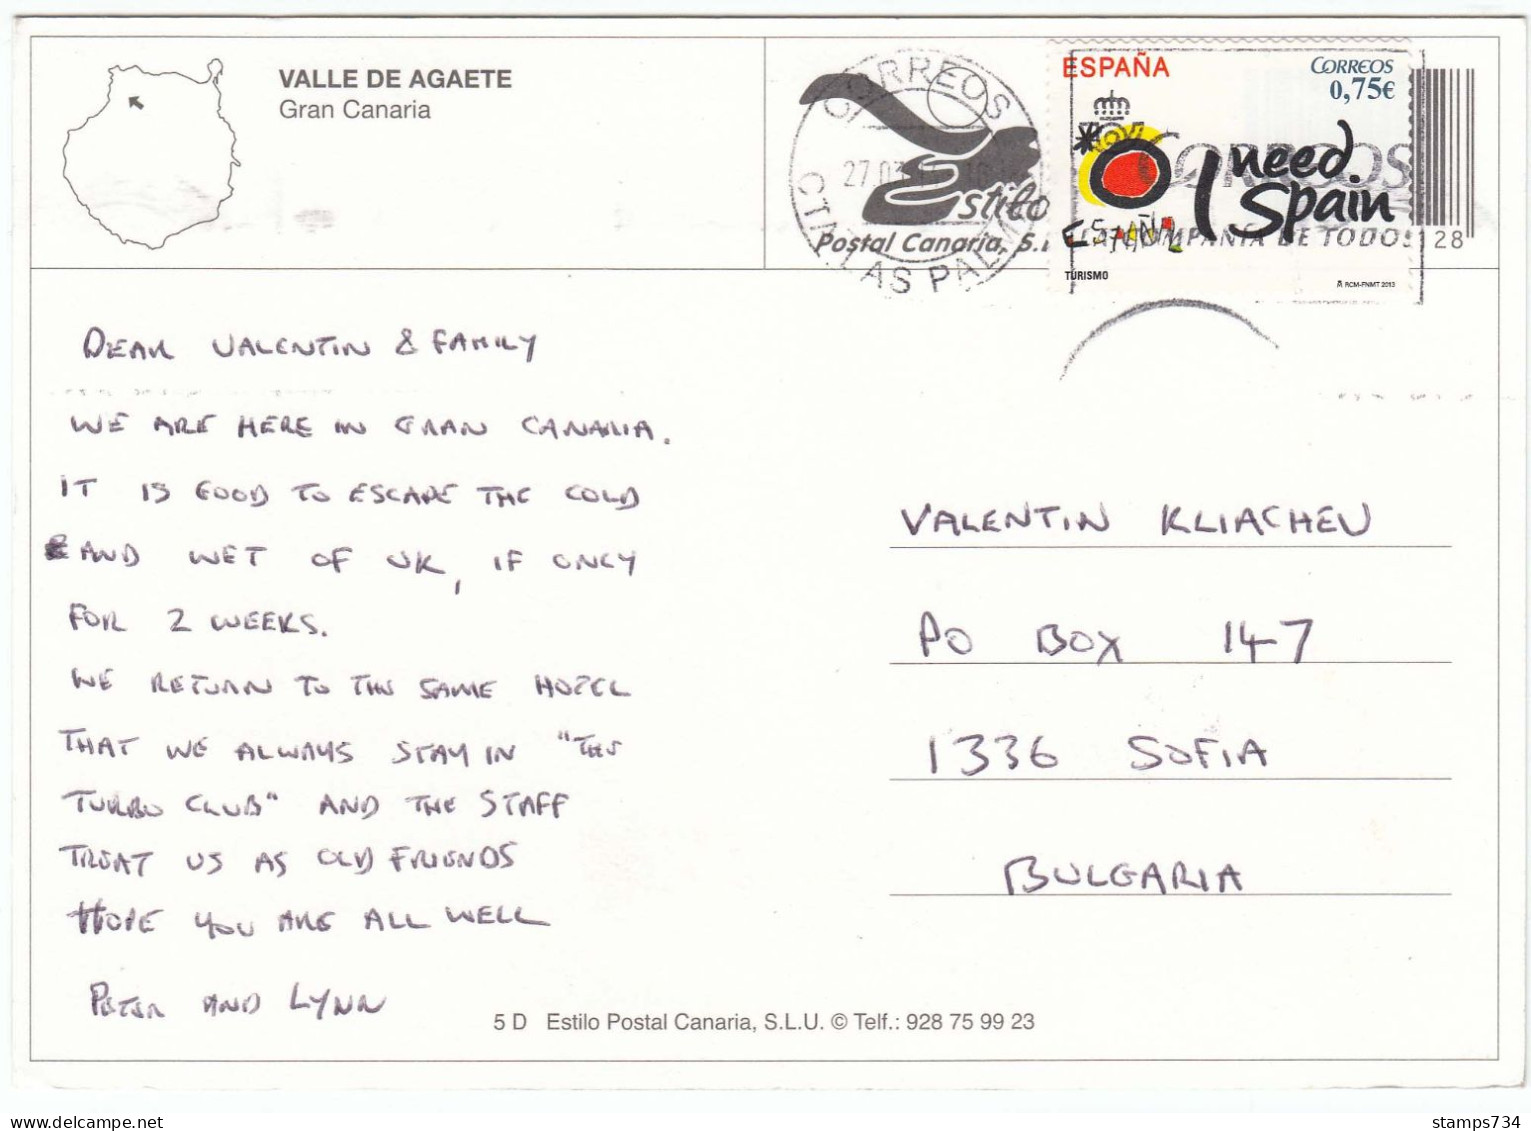 VALLE DE AGAETE
Gran Canaria
CORREOS
27.03
CTA LAS PALM
Estilo
Postal Canaria, S.L
ESPAÑA
CORREOS
0,75€
I need
Spain
ESPAÑA
CORREOS
LA COMPAÑIA DE TODOS
TURISMO
RCM-FNMT 2013
128
DEAR VALENTIN & FAMILY
WE ARE HERE IN GRAN CANARIA.
IT IS GOOD TO ESCAPE THE COLD
AND WET OF UK, IF ONLY
FOR 2 WEEKS.
WE RETURN TO THE SAME HOTEL
THAT WE ALWAYS STAY IN "THE
TURBO CLUB" AND THE STAFF
TREAT US AS OLD FRIENDS
HOPE YOU ARE ALL WELL
PETER AND LYNN
VALENTIN KLIACHEV
PO BOX 147
1336 SOFIA
BULGARIA
5 D Estilo Postal Canaria, S.L.U. © Telf.: 928 75 99 23
stamps734